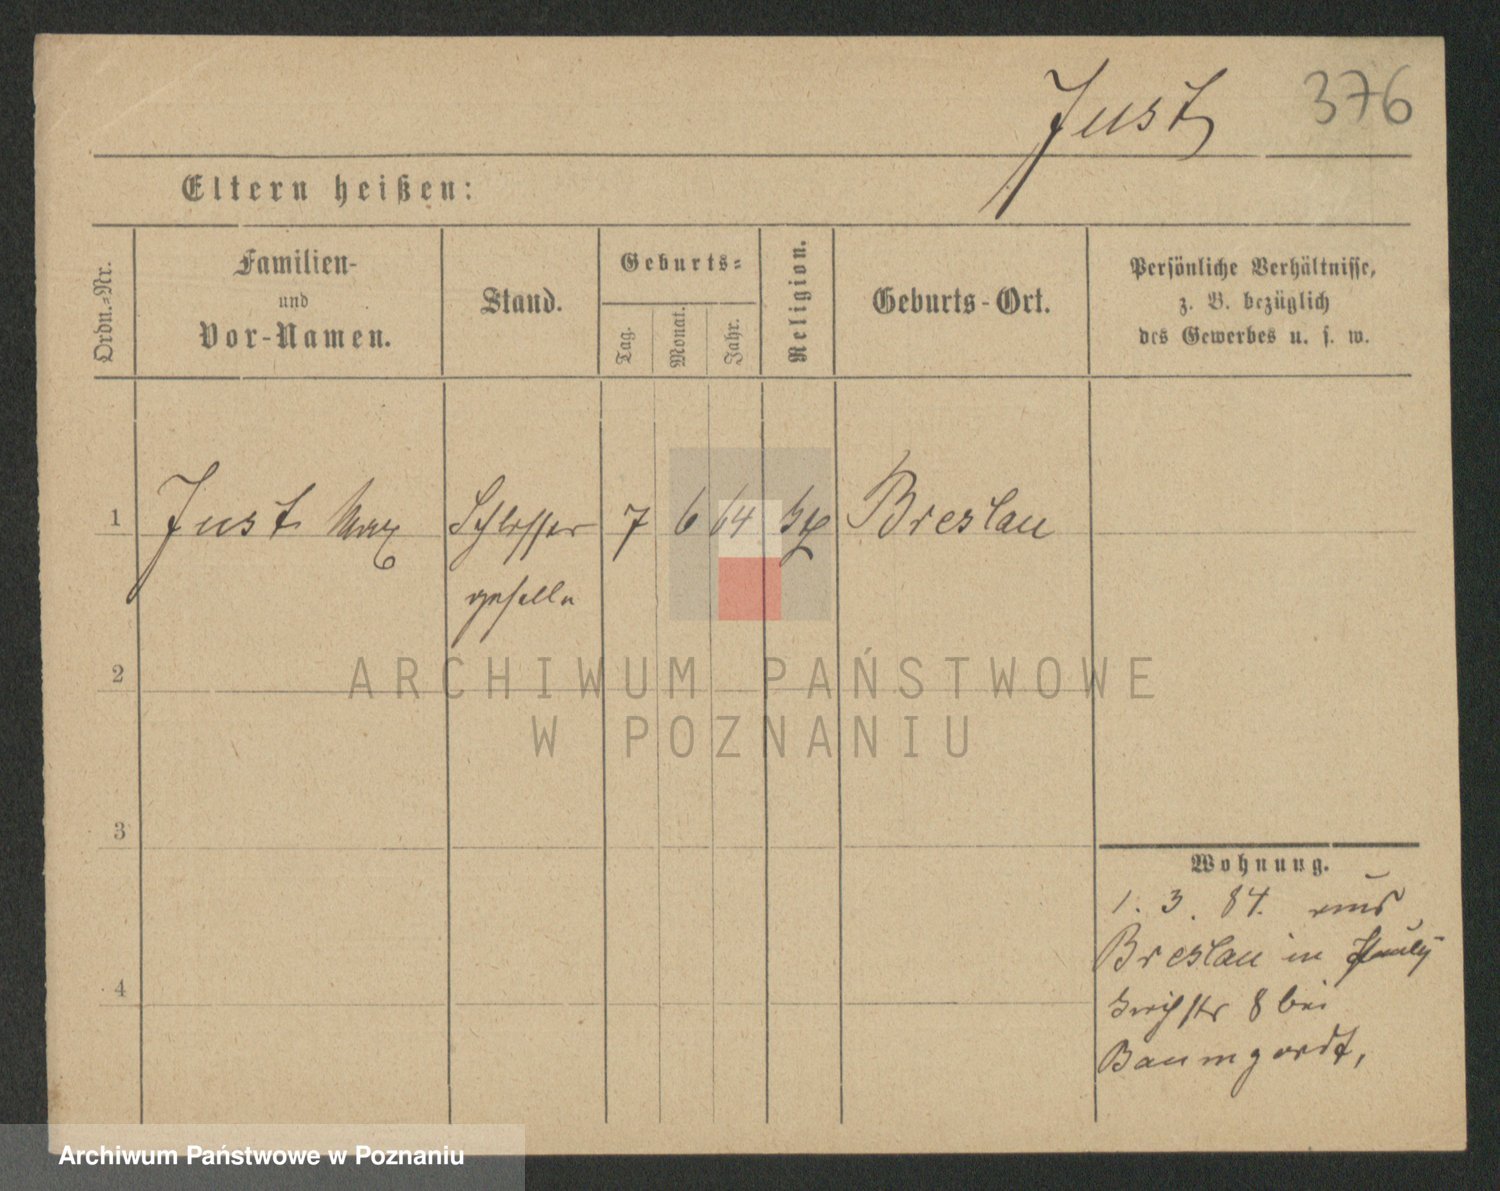 Just 376
Eltern heißen:
Ordn.-Nr.
Familien-
und
Vor-Namen.
Stand.
Geburts-
Tag.
Monat.
Jahr.
Religion.
Geburts-Ort.
Persönliche Verhältnisse,
z. B. bezüglich
des Gewerbes u. s. w.
1 Just Max Schlosser 7 6 64 Breslau
geselle
2
3
4
Wohnung.
1. 3. 84. aus
Breslau in
8 bei
Baumgardt,
ARCHIWUM PAŃSTWOWE
W POZNANIU
Archiwum Państwowe w Poznaniu